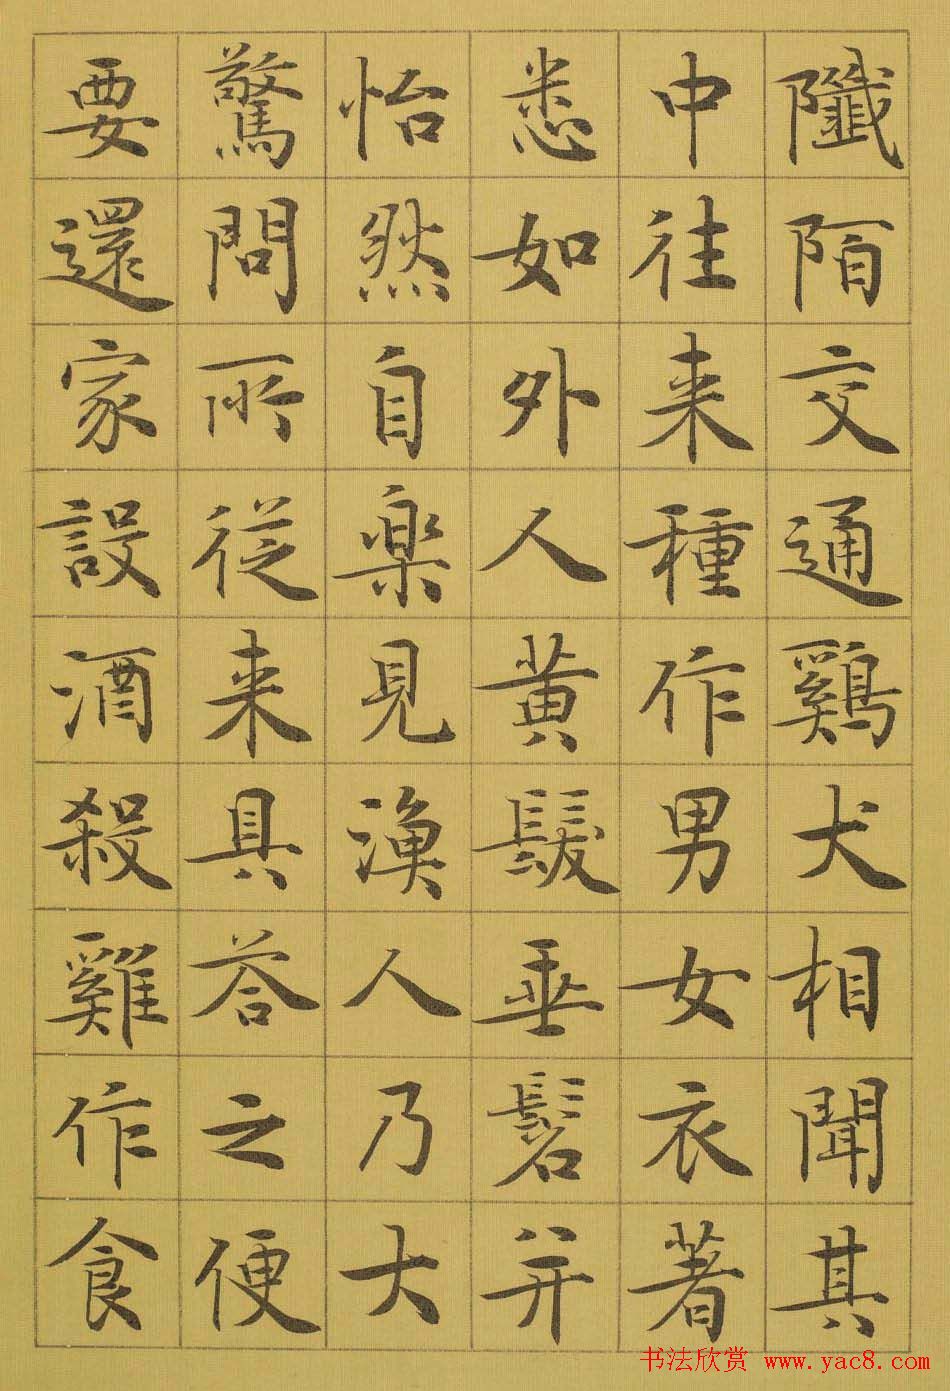 陌交通鷄犬相聞其
中往来種作男女衣著
悉如外人黄髮垂髫并
怡然自楽見漁人乃大
驚問所従来具荅之便
要還家設酒殺雞作食
书法欣赏 www.yac8.com